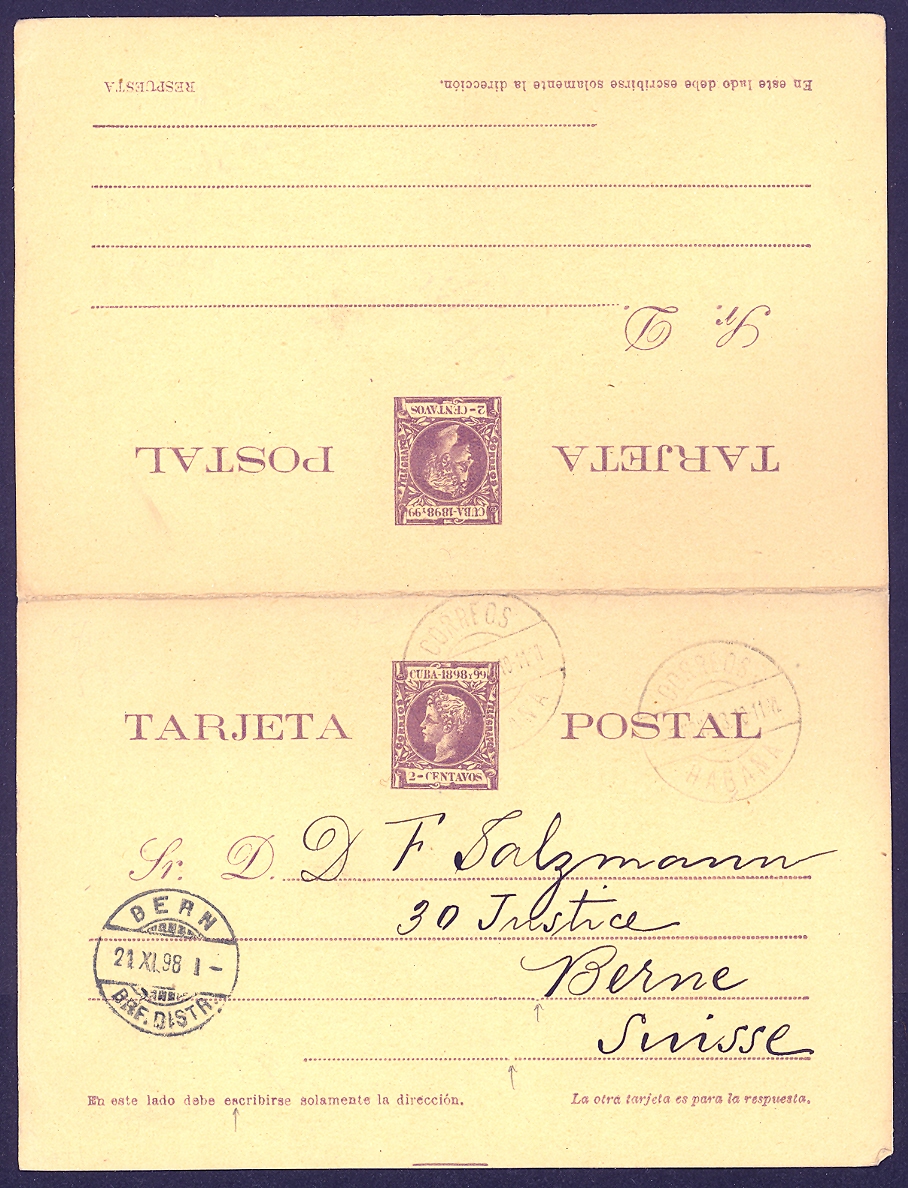 En este lado debe escribirse solamente la dirección.
RESPUESTA
Sr. D.
TARJETA
POSTAL
CUBA-1898 Y 99
CORREOS
TELEGRAFS
2-CENTAVOS
CORREOS
HABANA
CORREOS
HABANA
CUBA-1898 Y 99
CORREOS
TELEGRAFS
2-CENTAVOS
TARJETA
POSTAL
Sr. D. D F Salzmann
30 Justice
Berne
Suisse
BERN
21.XI.98 I-
BRF.DISTR.
En este lado debe escribirse solamente la dirección.
La otra tarjeta es para la respuesta.